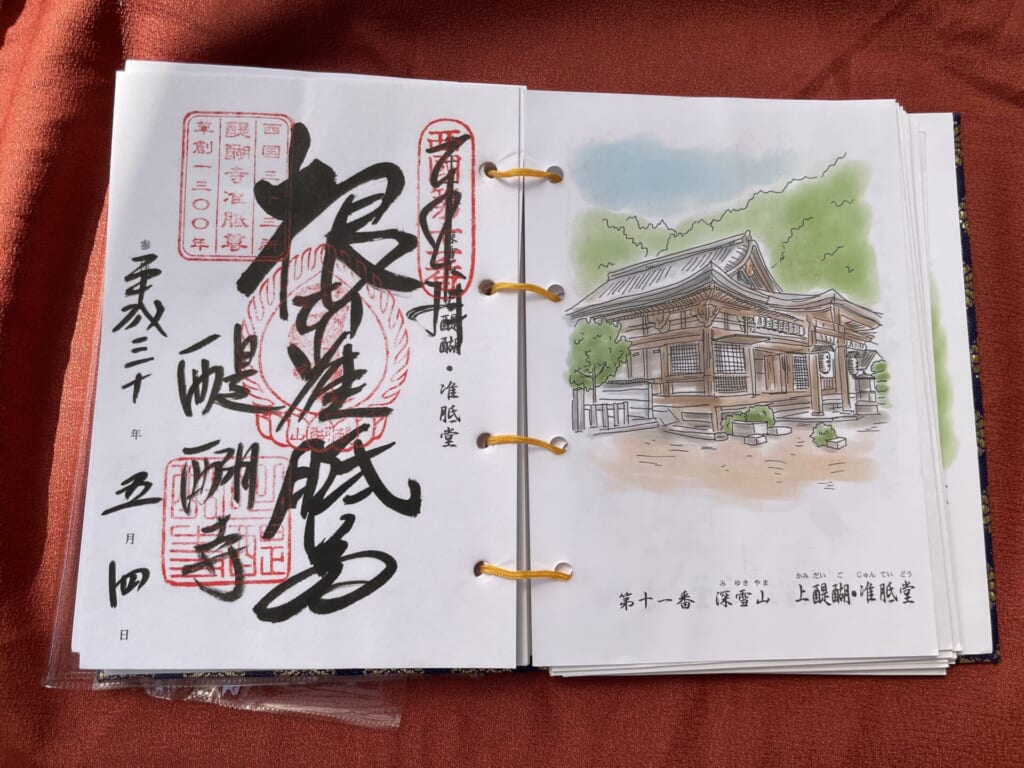 奉拝
醐・准胝堂
根本准胝尊
西国三十三所
醍醐寺准胝尊
草創一三〇〇年
醍醐寺
平成三十年五月四日
第十一番 深雪山 上醍醐・准胝堂
みゆきやま かみだいご じゅんていどう